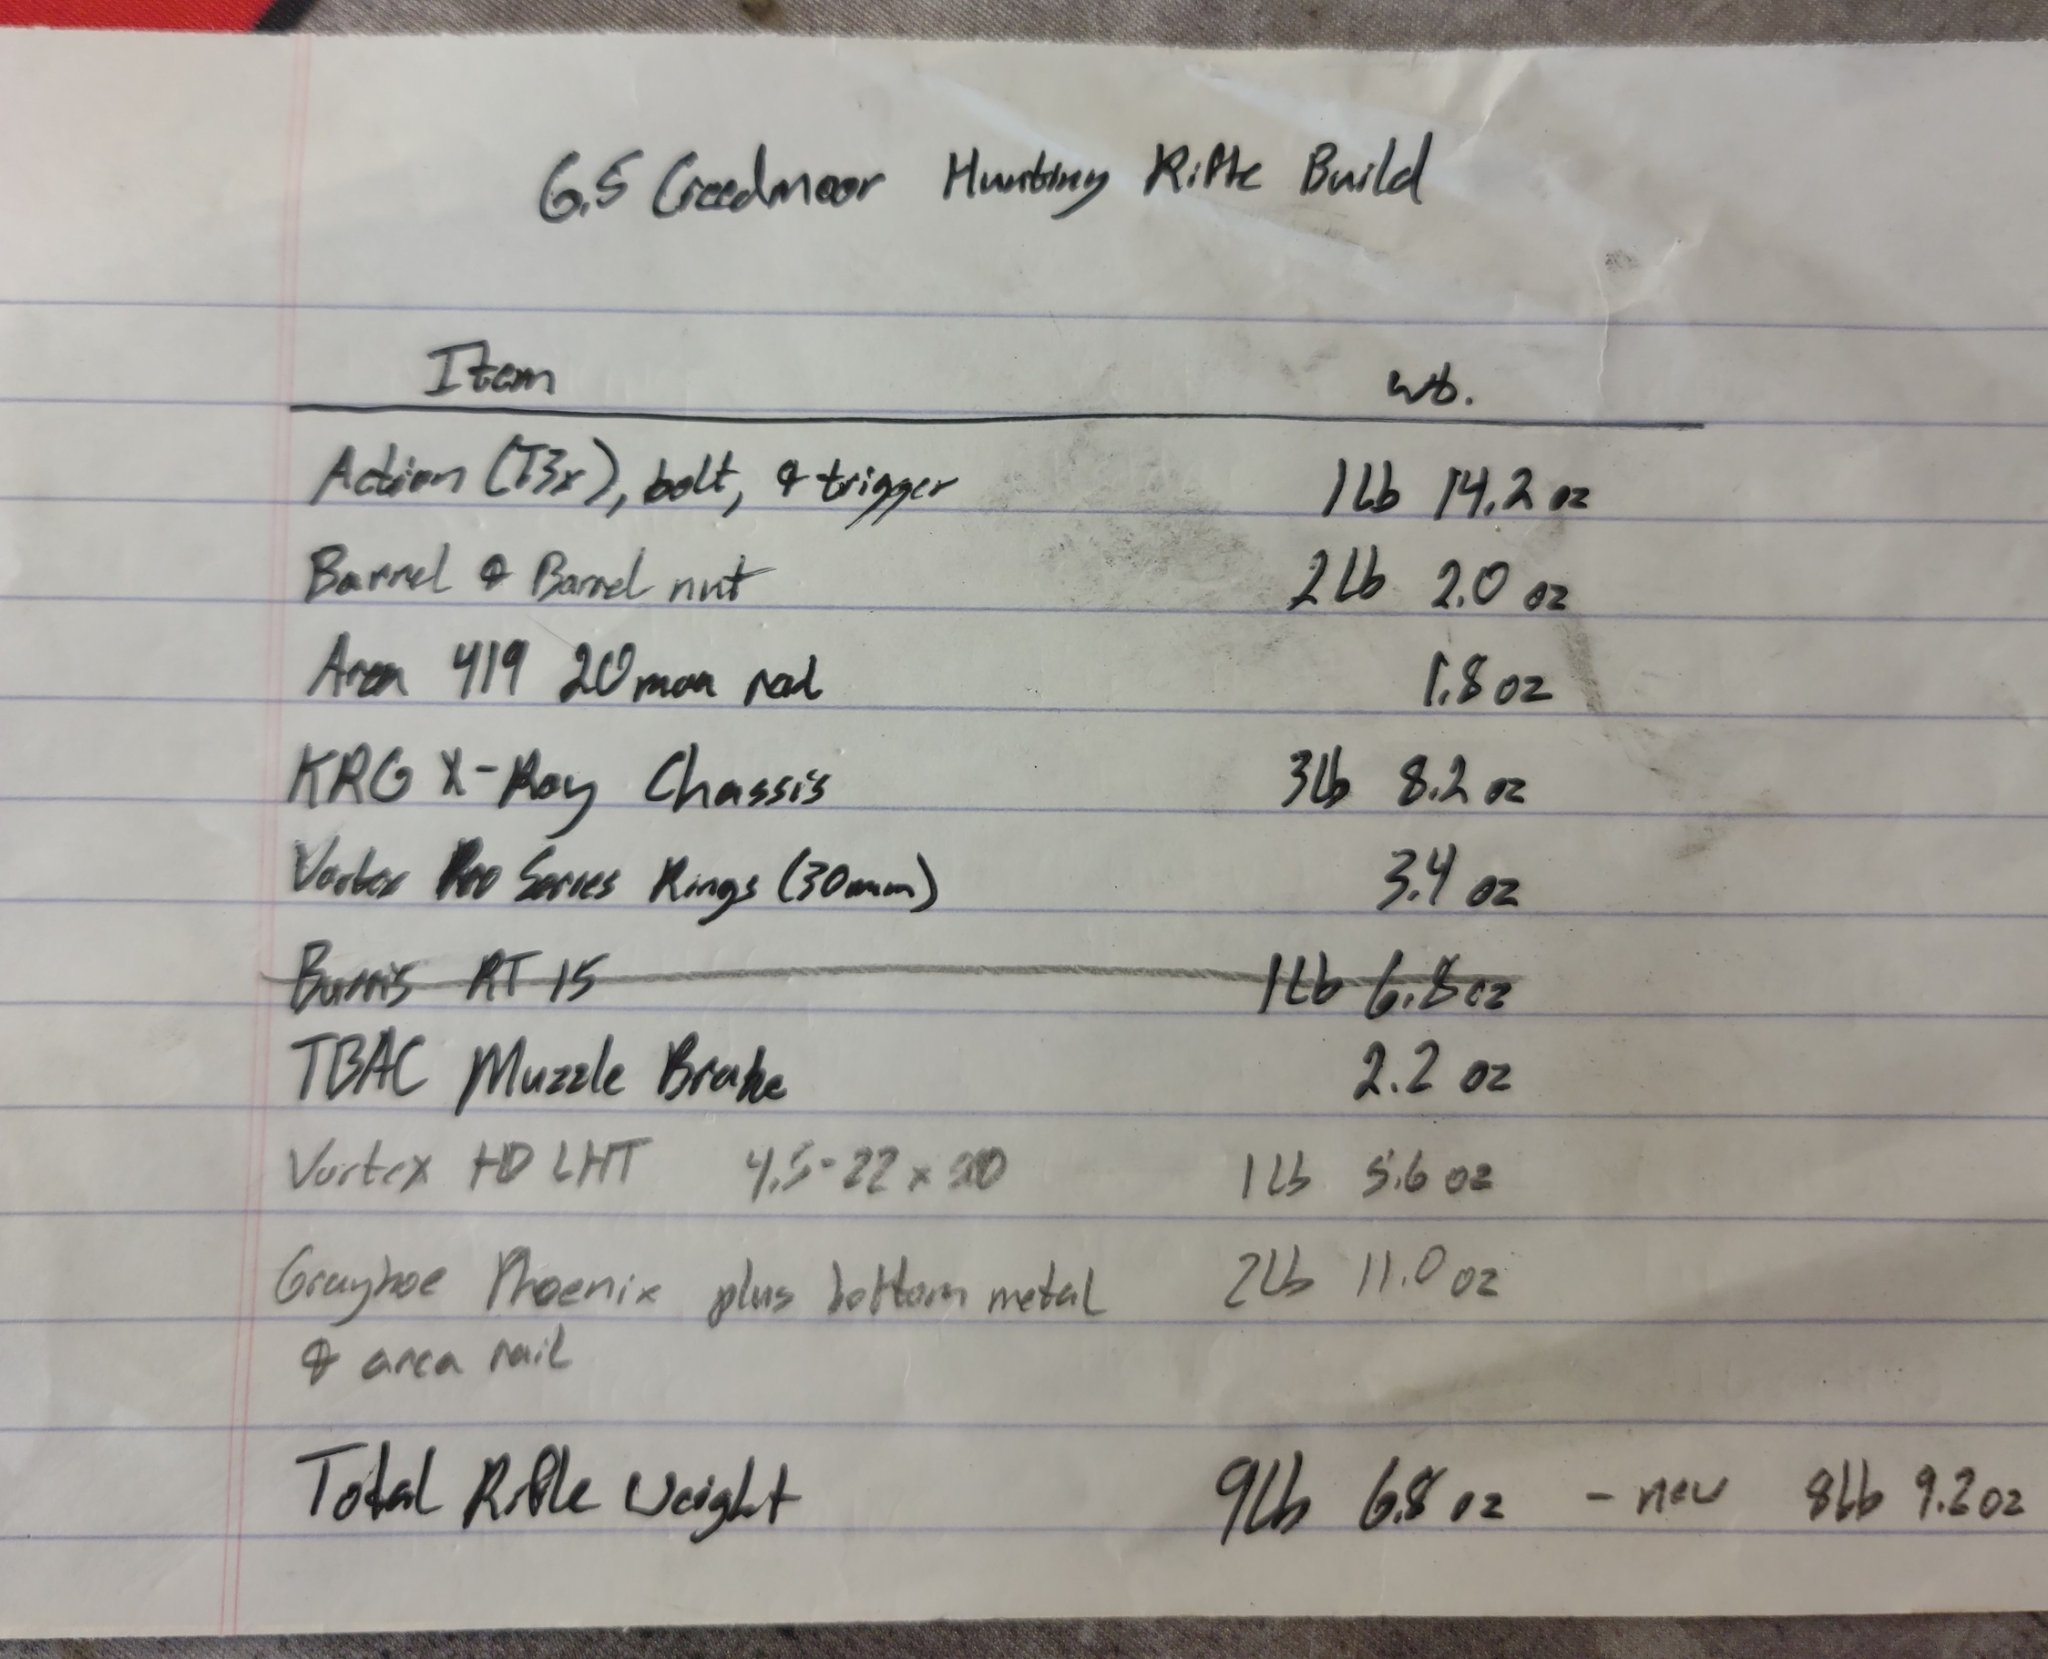 6.5 Creedmoor Hunting Rifle Build
Item wt.
Action (T3x), bolt, & trigger 1Lb 14.2 oz
Barrel & Barrel nut 2Lb 2.0 oz
Area 419 20 moa rail 1.8 oz
KRG X-Ray Chassis 3Lb 8.2 oz
Vortex Pro Series Rings (30mm) 3.4 oz
Burris RT 15 1Lb 6.8 oz
TBAC Muzzle Brake 2.2 oz
Vortex HD LHT 4.5-22 x 50 1Lb 5.6 oz
Grayboe Phoenix plus bottom metal 2Lb 11.0 oz
& arca rail
Total Rifle Weight 9Lb 6.8 oz - new 8Lb 9.2 oz